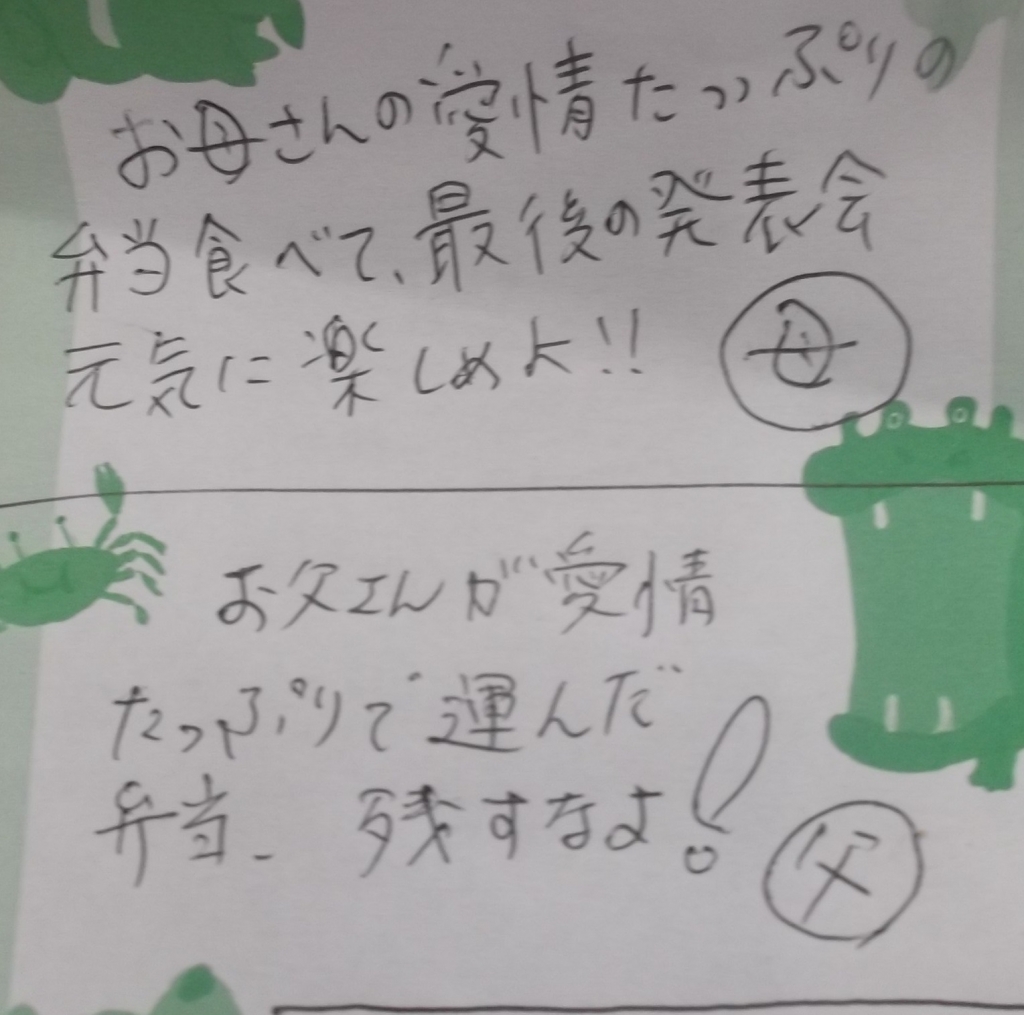 お母さんの愛情たっぷりの
弁当食べて、最後の発表会
元気に楽しめよ!! 母
お父さんが愛情
たっぷりで運んだ
弁当、残すなよ! 父